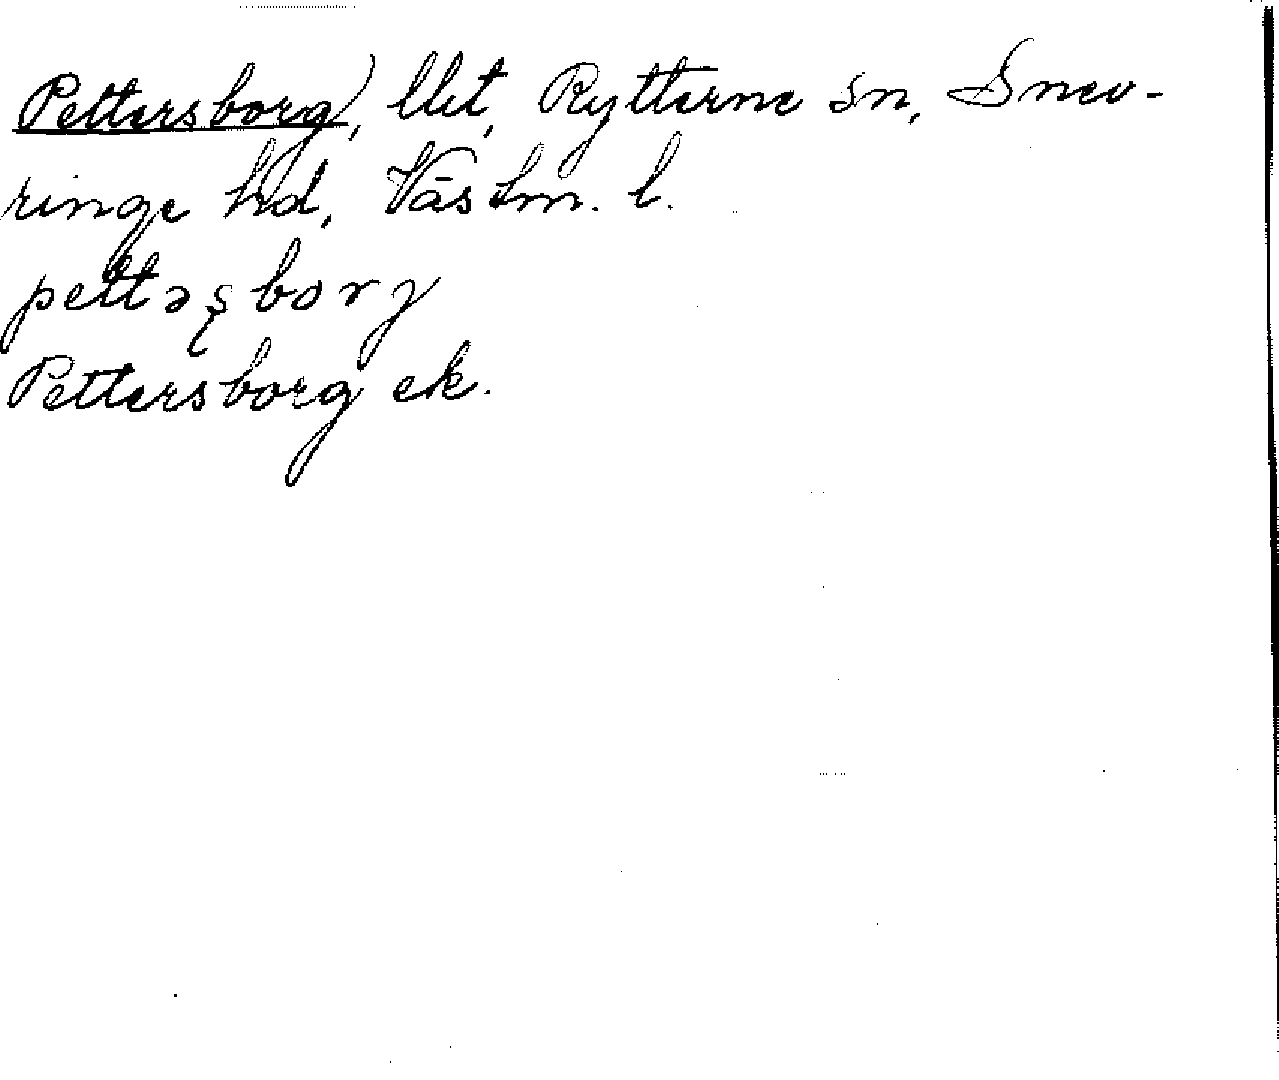 Pettersborg), llet, Rytterne sn, Snev-
ringe hd, Västm. l.
pettəʂborj
Pettersborg ek.